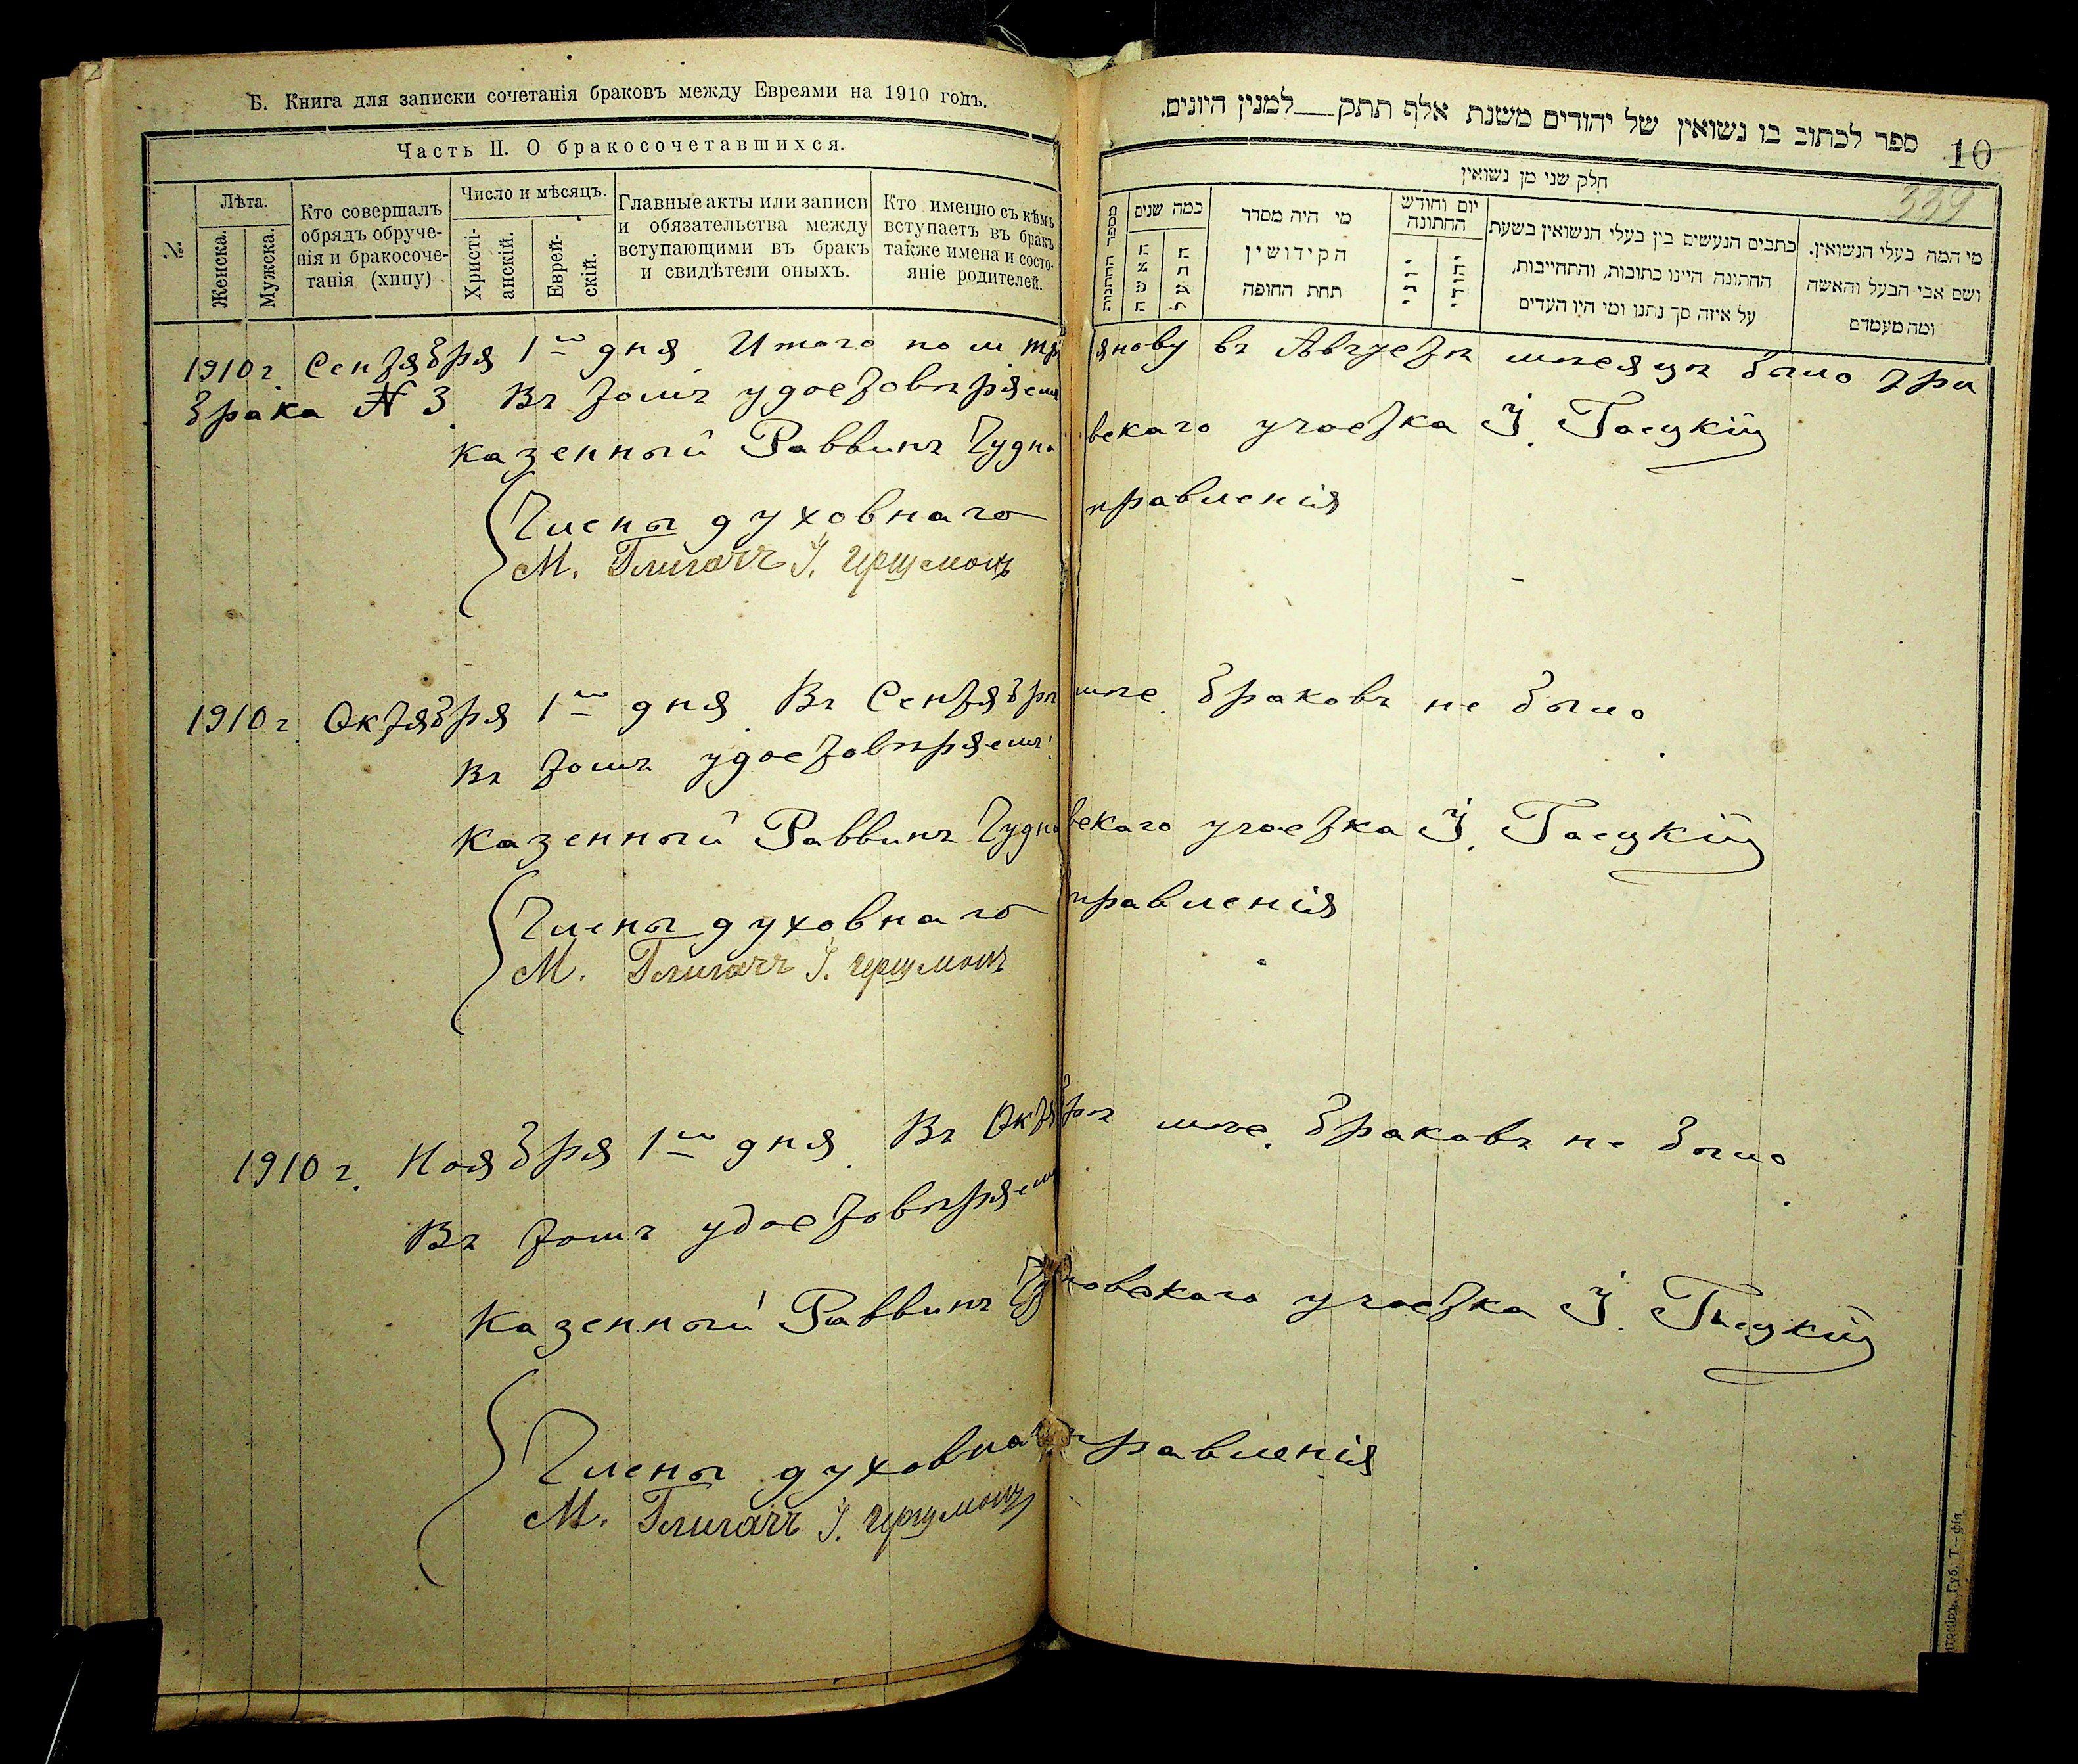 Б. Книга для записки сочетанія браковъ между Евреями на 1910 годъ.
Часть II. О бракосочетавшихся.
№
Лѣта.
Женска.
Мужска.
Кто совершалъ
обрядъ обруче-
нія и бракосоче-
танія (хипу)
Число и мѣсяцъ.
Христі-
анскій.
Еврей-
скій.
Главные акты или записи
и обязательства между
вступающими въ бракъ
и свидѣтели оныхъ.
Кто именно съ кѣмъ
вступаетъ въ бракъ
также имена и состо-
яніе родителей.
ספר לכתוב בו נשואין של יהודים משנת אלף תתק__למנין היונים.
10
339
חלק שני מן נשואין
מספר החתונות
כמה שנים
האשה
הבעל
מי היה מסדר
הקידושין
תחת החופה
יום וחודש
החתונה
יוני
יהודי
כתבים הנעשים בין בעלי הנשואין בשעת
החתונה היינו כתובות, והתחייבות,
על איזה סך נתנו ומי היו העדים
מי המה בעלי הנשואין.
ושם אבי הבעל והאשה
ומה מעמדם
1910 г. Сентября 1го дня Итого по м. Тр янову въ Августѣ мѣсяцѣ было три
брака № 3. Въ томъ удостовѣряемъ
казенный Раввинъ Чудновскаго участка І. Гасцкій
Члены духовнаго правленія
М. І.
1910 г. Октября 1го дня. Въ Сентябрѣ мѣс. браковъ не было.
Въ томъ удостовѣряемъ:
Казенный Раввинъ Чудновскаго участка І. Гасцкій
Члены духовнаго правленія
М. І.
1910 г. Ноября 1го дня. Въ Октябрѣ мѣс. браковъ не было.
Въ томъ удостовѣряемъ
Казенный Раввинъ Чудновскаго участка І. Гасцкій
Члены духовнаго правленія
М. І.
Губ. Т—фія